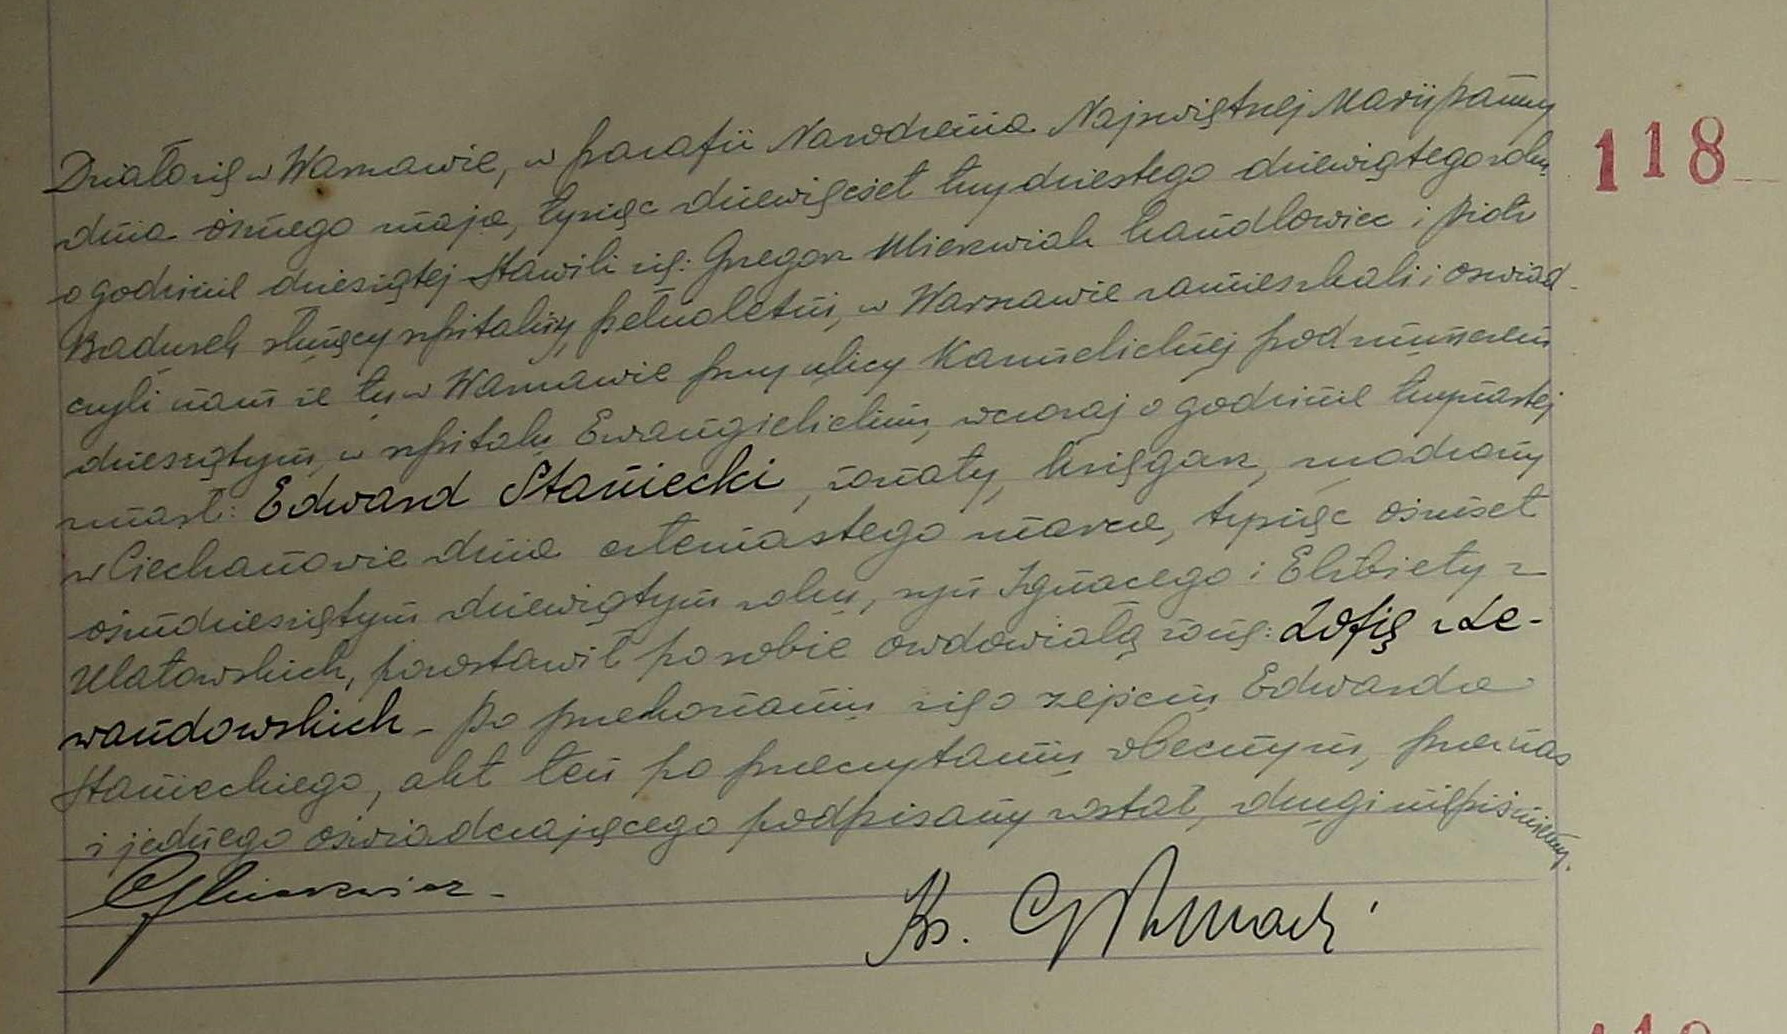 Działo się w Warszawie, w parafii Narodzenia Najświętszej Marji panny
118
dnia ósmego maja, tysiąc dziewięćset trzydziestego dziewiątego roku
o godzinie dziesiątej stawili się: Grzegorz Mierzwiak handlowiec i Piotr
Badurek służący szpitalny, pełnoletni, w Warszawie zamieszkali i oświad-
czyli nam że tu w Warszawie przy ulicy Karmelickiej pod numerem
dziesiątym, w szpitalu Ewangielickim, wczoraj o godzinie trzynastej
zmarł: Edward Staniecki, żonaty, księgarz, zrodzony
w Ciechanowie dnia czternastego marca, tysiąc ośmset
ośmdziesiątym dziewiątym roku, syn Ignacego i Elżbiety z
Ulatowskich, pozostawił po sobie owdowiałą żonę: Zofię z Le-
wandowskich - Po przekonaniu się o zejściu Edwarda
Stanieckiego, akt ten po przeczytaniu obecnym, przez nas
i jednego oświadczającego podpisany został, drugi niepiśmienny.
Ks.